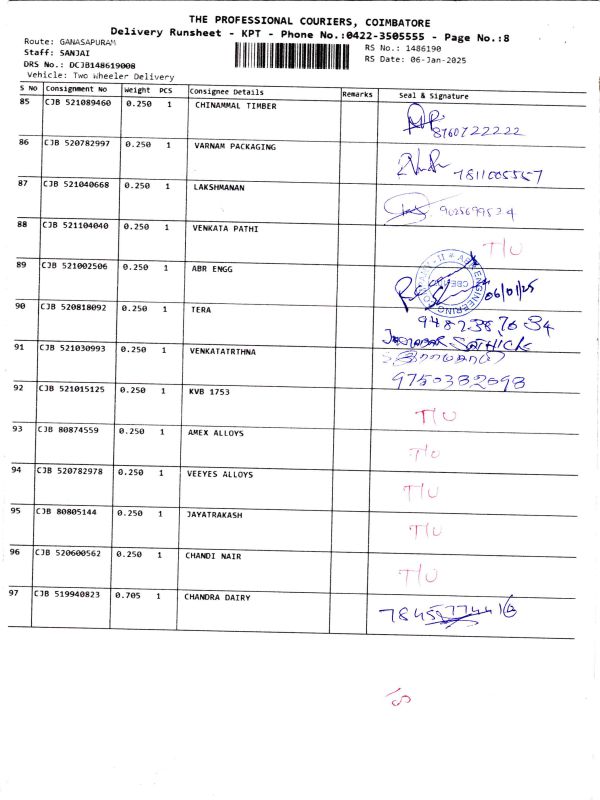 THE PROFESSIONAL COURIERS, COIMBATORE
Delivery Runsheet - KPT - Phone No.:0422-3505555 - Page No.:8
Route: GANASAPURAM
Staff: SANJAI
DRS No.: DCJB148619008
Vehicle: Two Wheeler Delivery
RS No.: 1486190
RS Date: 06-Jan-2025
S No Consignment No Weight PCS Consignee Details Remarks Seal & Signature
85 CJB 521089460 0.250 1 CHINNAMMAL TIMBER
8760722222
86 CJB 520782997 0.250 1 VARNAM PACKAGING
7811005557
87 CJB 521040668 0.250 1 LAKSHMANAN
9025699534
88 CJB 521104040 0.250 1 VENKATA PATHI T/U
89 CJB 521002506 0.250 1 ABR ENGG
06/01/25
90 CJB 520818092 0.250 1 TERA
9482387634
91 CJB 521030993 0.250 1 VENKATATRTHNA
9750382098
92 CJB 521015125 0.250 1 KVB 1753 T/U
93 CJB 80874559 0.250 1 AMEX ALLOYS T/U
94 CJB 520782978 0.250 1 VEEYES ALLOYS T/U
95 CJB 80805144 0.250 1 JAYATRAKASH T/U
96 CJB 520600562 0.250 1 CHANDI NAIR T/U
97 CJB 519940823 0.705 1 CHANDRA DAIRY